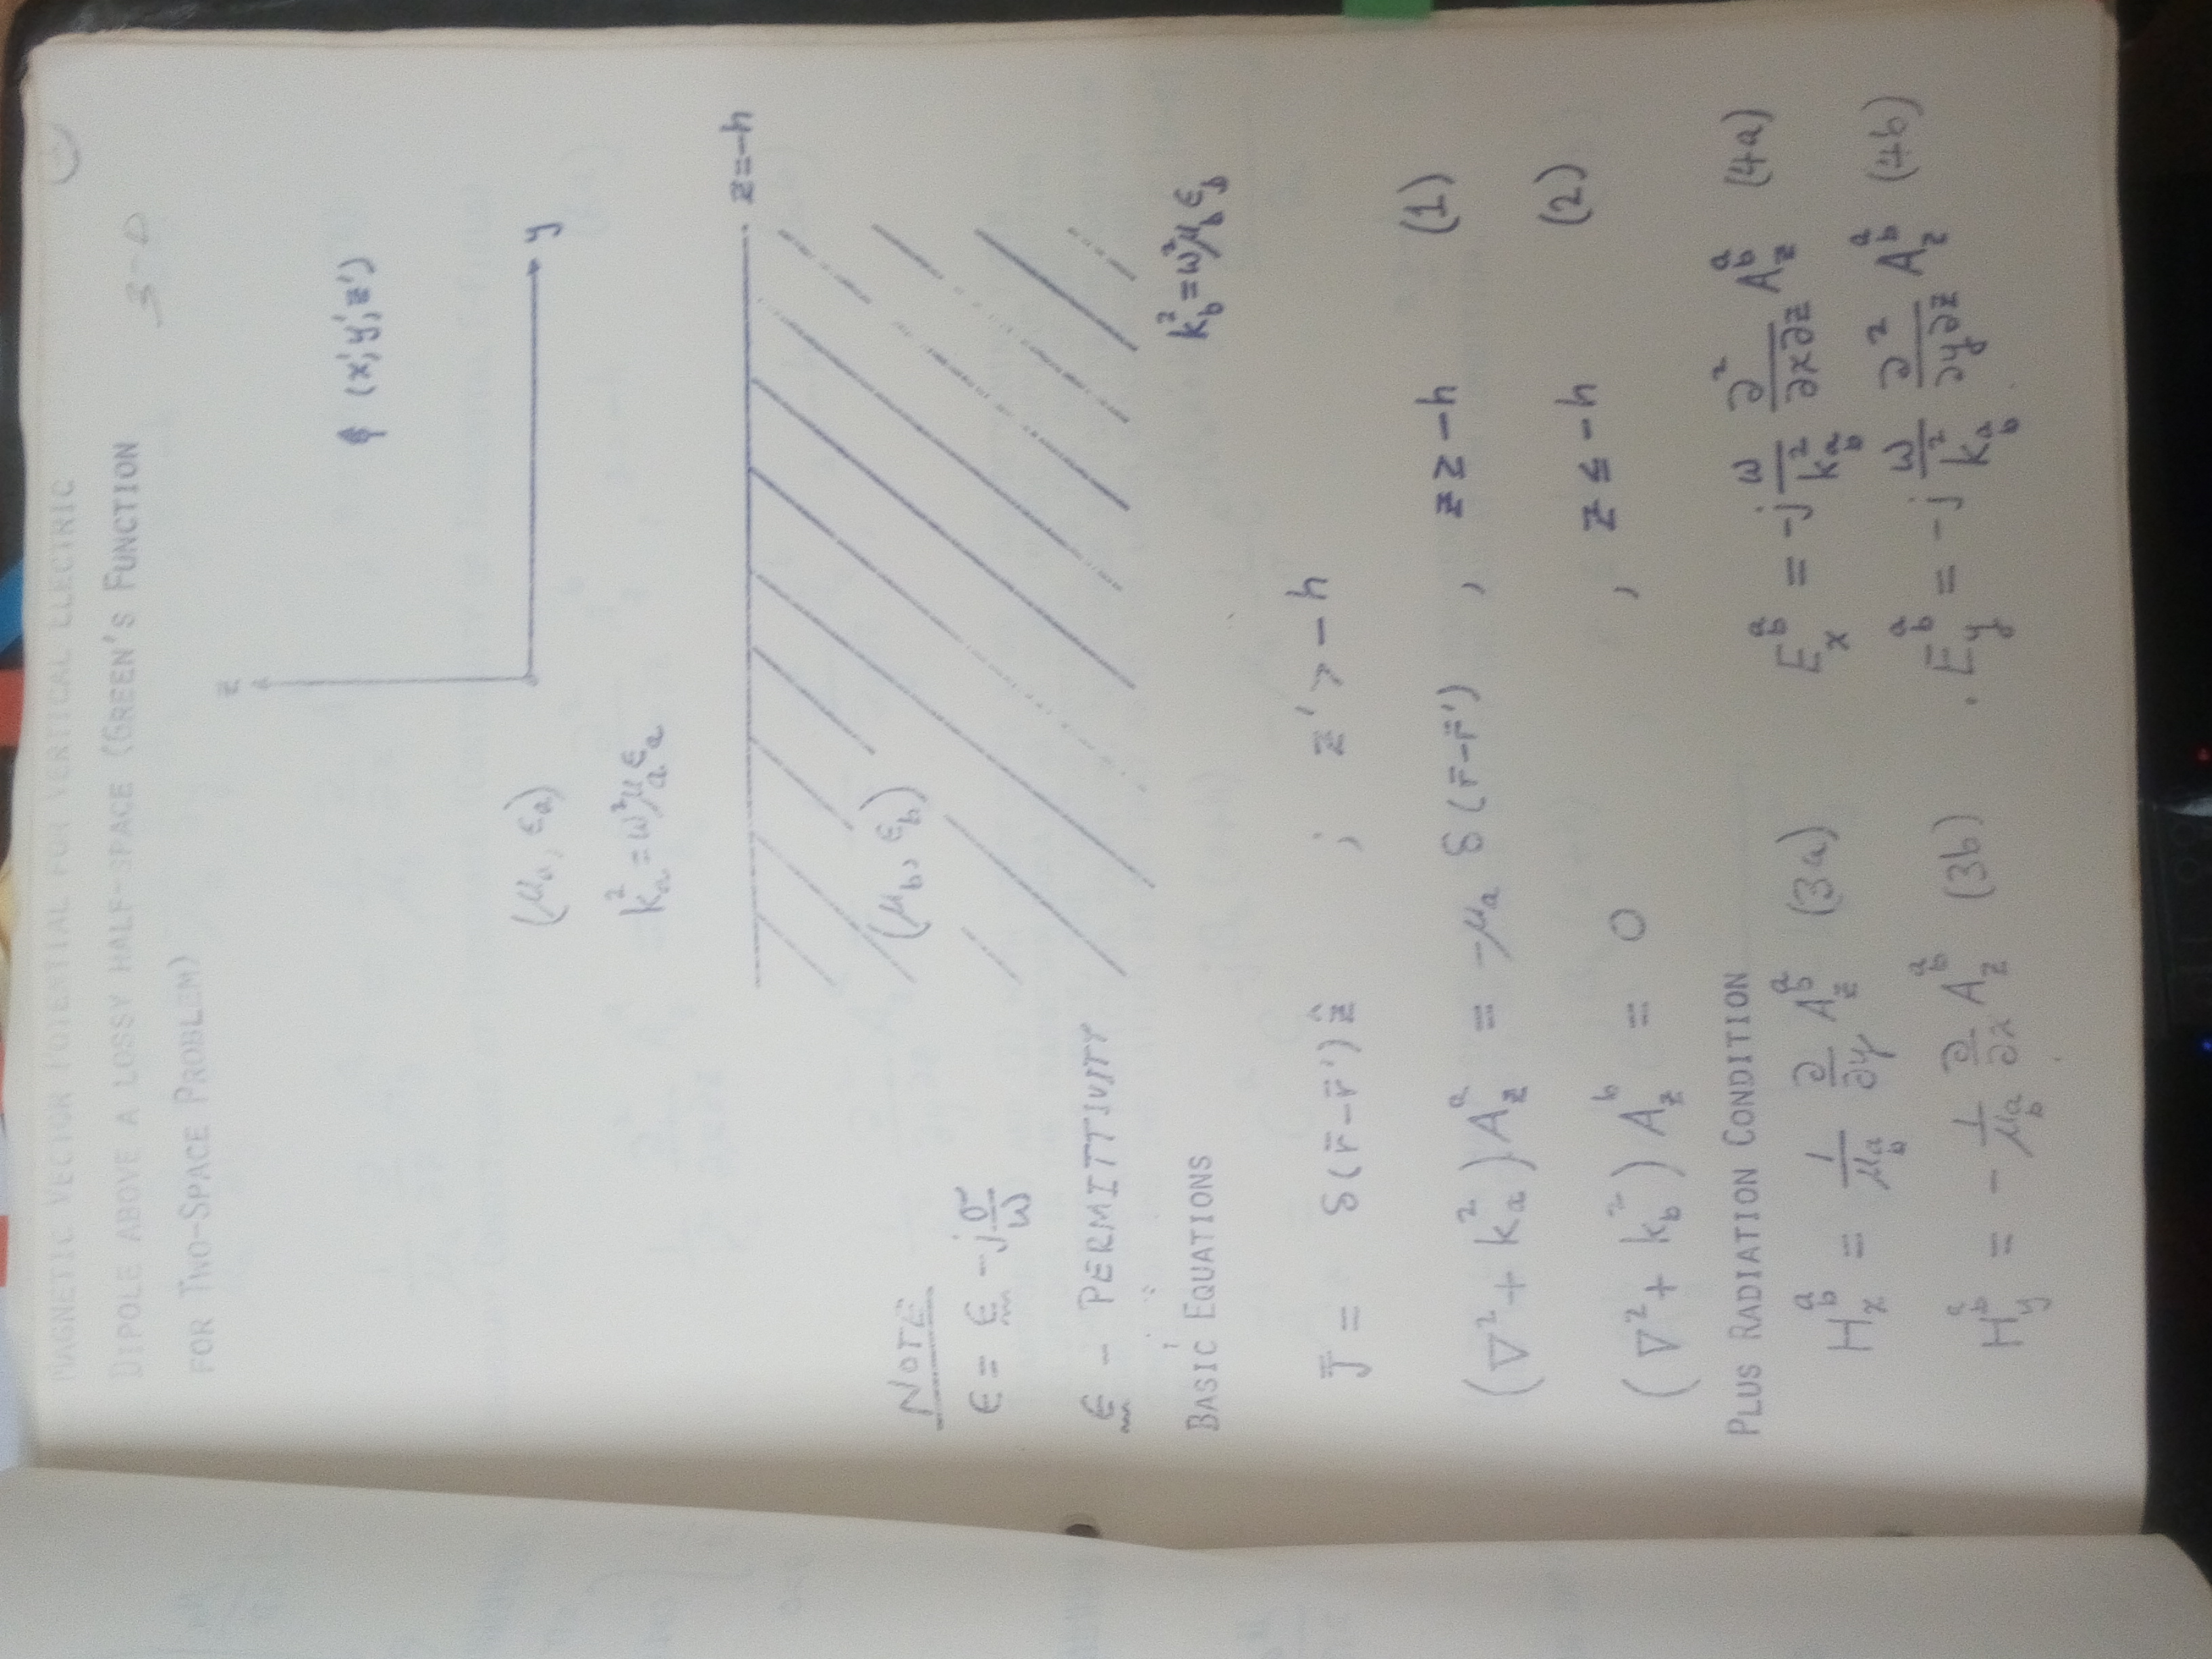 MAGNETIC VECTOR POTENTIAL FOR VERTICAL ELECTRIC
DIPOLE ABOVE A LOSSY HALF-SPACE (GREEN'S FUNCTION
FOR TWO-SPACE PROBLEM)
3-D
1
z
(x',y',z')
y
(μₐ, εₐ)
kₐ² = ω²μₐεₐ
z=-h
(μ_b, ε_b)
k_b² = ω²μ_bε_b
NOTE
ϵ = ϵ̰ - j σ/ω
ϵ̰ - PERMITTIVITY
BASIC EQUATIONS
J̄ = δ(r̄-r̄')ẑ ; z' > -h
(∇² + kₐ²) A_z^a = -μₐ δ(r̄-r̄') , z ≥ -h (1)
(∇² + k_b²) A_z^b = 0 , z ≤ -h (2)
PLUS RADIATION CONDITION
H_x^{a b} = 1/μ_{a b} ∂/∂y A_z^{a b} (3a) E_x^{a b} = -j ω/k²_{a b} ∂²/∂x∂z A_z^{a b} (4a)
H_y^{a b} = - 1/μ_{a b} ∂/∂x A_z^{a b} (3b) E_y^{a b} = -j ω/k²_{a b} ∂²/∂y∂z A_z^{a b} (4b)